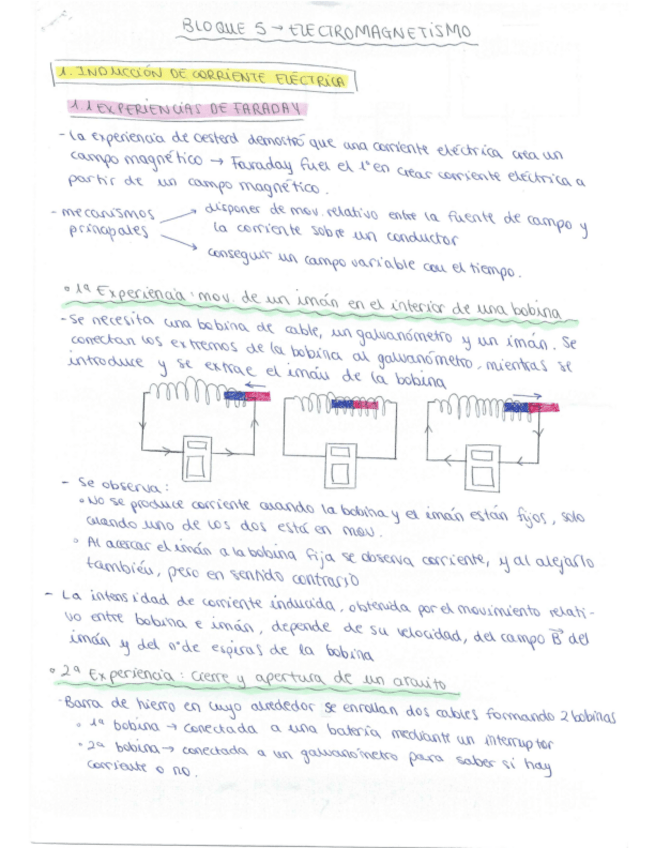 BLOQUE 5 → ELECTROMAGNETISMO
1. INDUCCIÓN DE CORRIENTE ELÉCTRICA
1.1 EXPERIENCIAS DE FARADAY
- La experiencia de Oesterd demostró que una corriente eléctrica crea un
campo magnético → Faraday fue el 1º en crear corriente eléctrica a
partir de un campo magnético.
- mecanismos principales → disponer de mov. relativo entre la fuente de campo y
la corriente sobre un conductor
→ conseguir un campo variable con el tiempo.
• 1ª Experiencia: mov. de un imán en el interior de una bobina
- Se necesita una bobina de cable, un galvanómetro y un imán. Se
conectan los extremos de la bobina al galvanómetro, mientras se
introduce y se extrae el imán de la bobina
- Se observa:
• No se produce corriente cuando la bobina y el imán están fijos, solo
cuando uno de los dos está en mov.
• Al acercar el imán a la bobina fija se observa corriente, y al alejarlo
también, pero en sentido contrario
- La intensidad de corriente inducida, obtenida por el movimiento relati-
vo entre bobina e imán, depende de su velocidad, del campo B⃗ del
imán y del nº de espiras de la bobina
• 2ª Experiencia: cierre y apertura de un circuito
- Barra de hierro en cuyo alrededor se enrollan dos cables formando 2 bobinas
• 1ª bobina → conectada a una batería mediante un interruptor
• 2ª bobina → conectada a un galvanómetro para saber si hay
corriente o no.